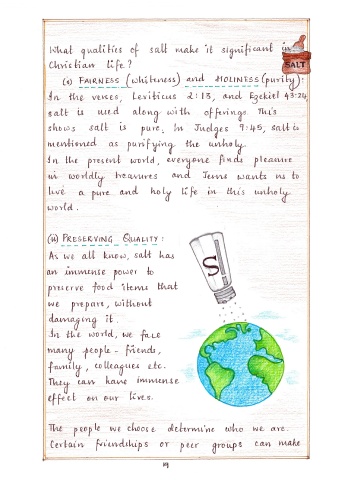 What qualities of salt make it significant in
Christian life?
SALT
(i) FAIRNESS (whiteness) and HOLINESS (purity):
In the verses, Leviticus 2:13, and Ezekiel 43:24
salt is used along with offerings. This
shows salt is pure. In Judges 9:45, salt is
mentioned as purifying the unholy.
In the present world, everyone finds pleasure
in worldly treasures and Jesus wants us to
live a pure and holy life in this unholy
world.
(ii) PRESERVING QUALITY:
As we all know, salt has
an immense power to
preserve food items that
we prepare, without
damaging it.
In the world, we face
many people - friends,
family, colleagues etc.
They can have immense
effect on our lives.
S
The people we choose determine who we are.
Certain friendships or peer groups can make
19